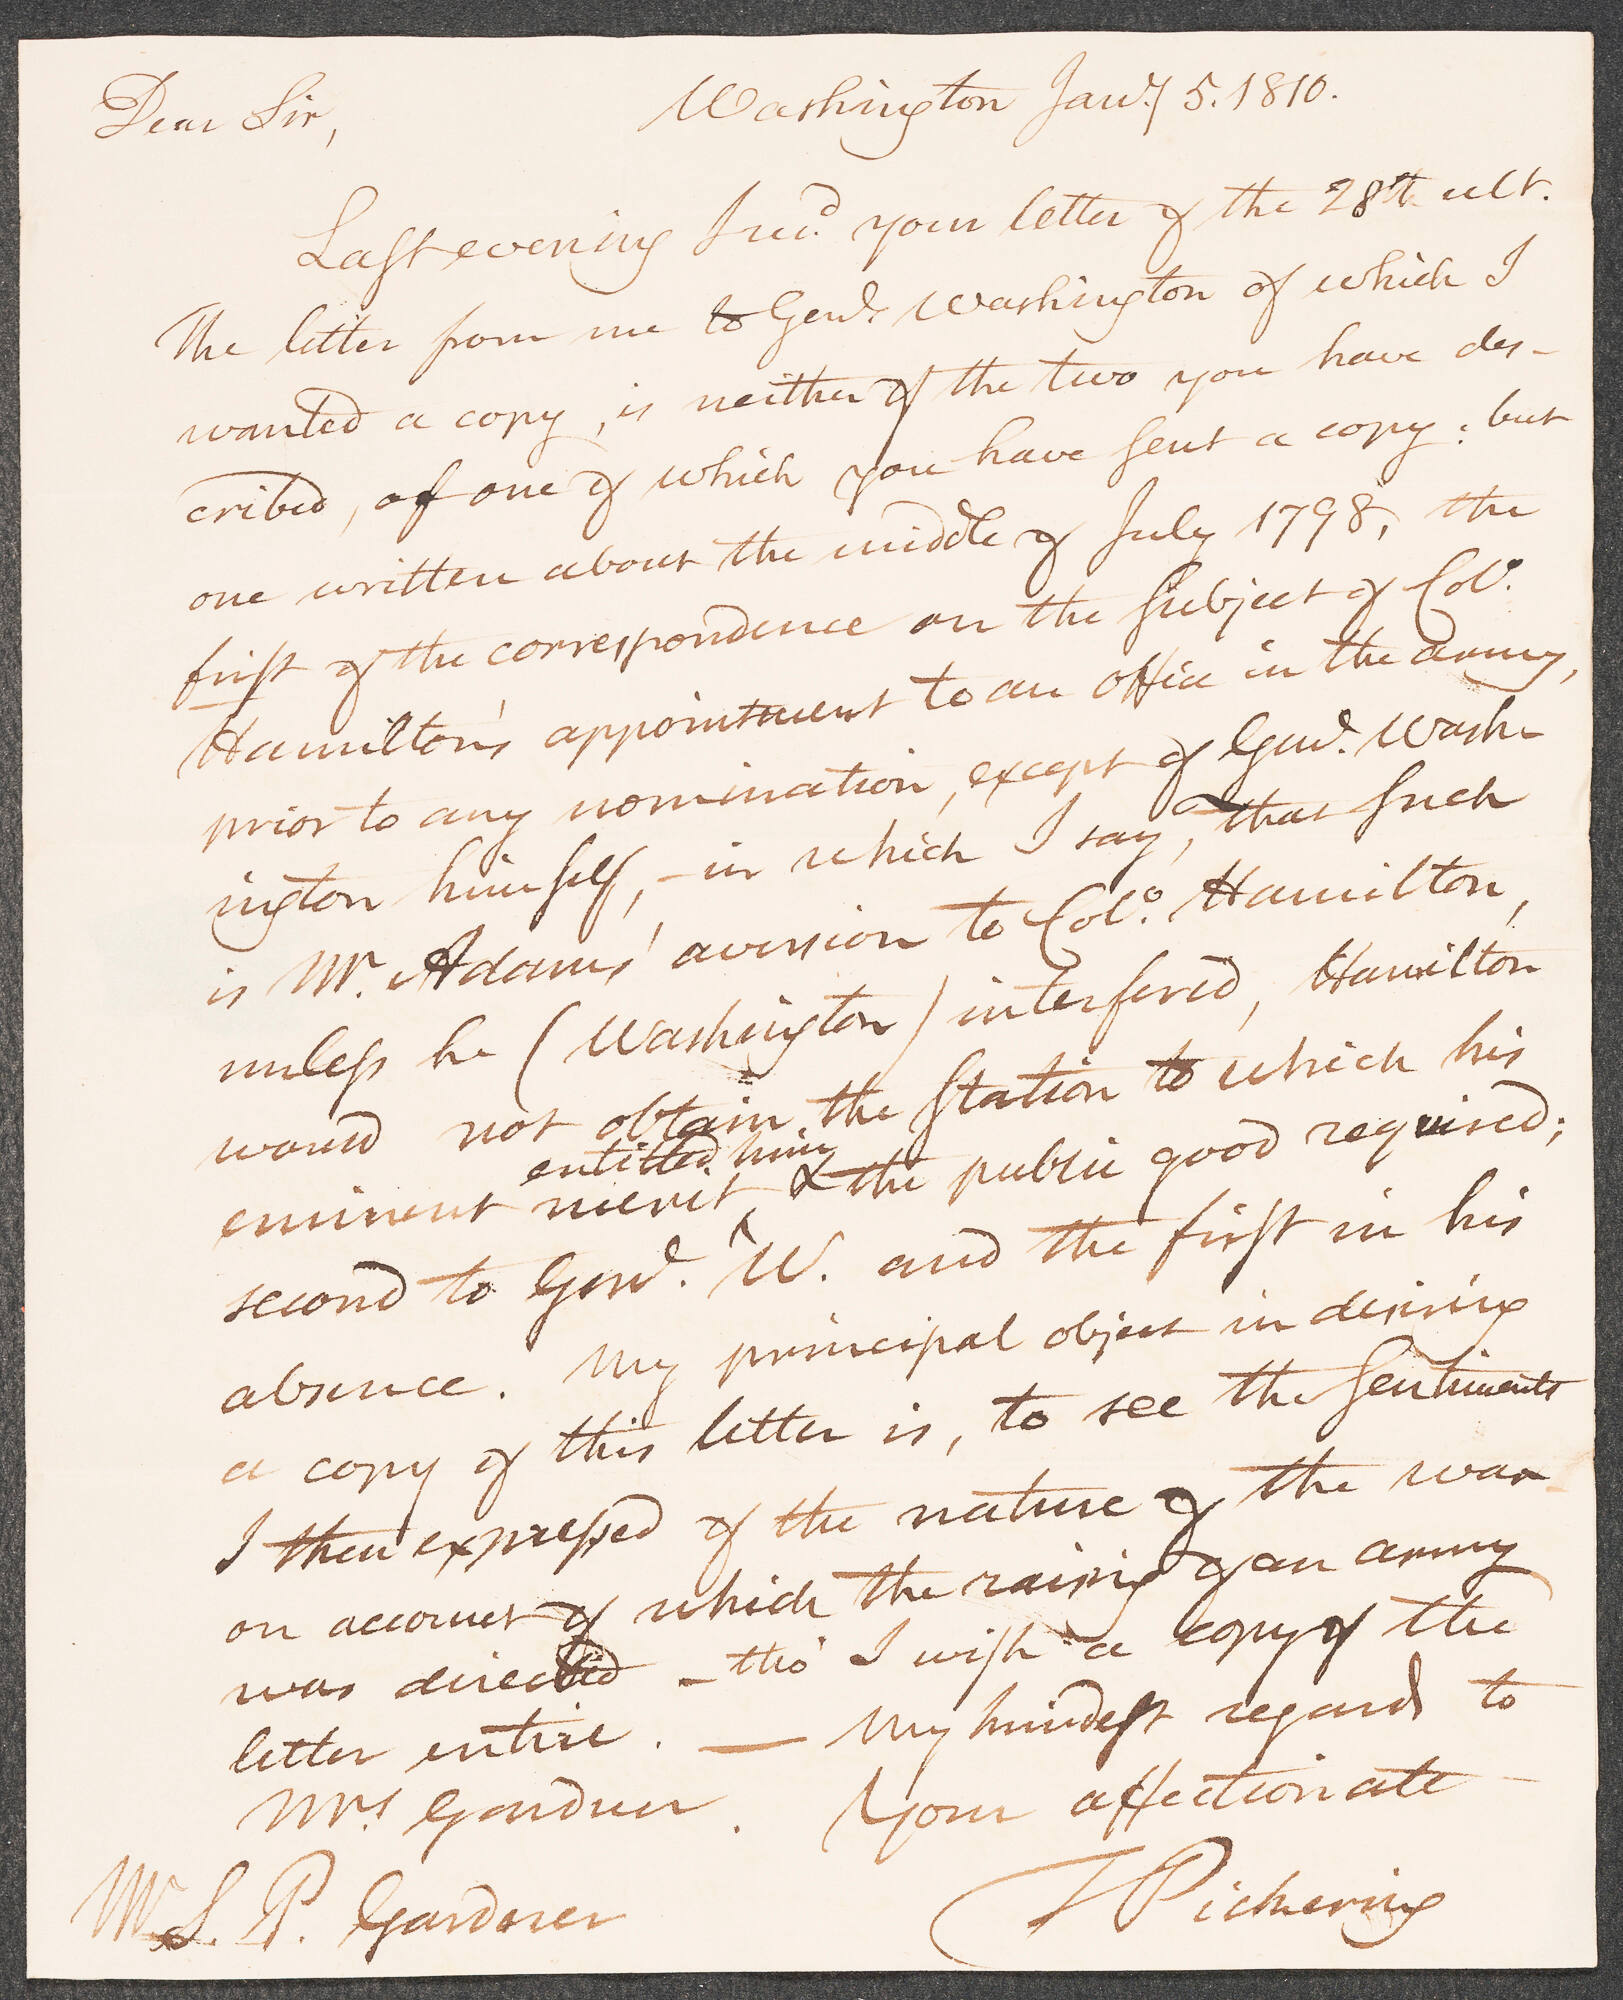 Dear Sir, Washington Jany 5. 1810.
Last evening I recd. your letter of the 28th ult.
The letter from me to Genl. Washington of which I
wanted a copy, is neither of the two you have des-
cribed, of one of which you have sent a copy; but
one written about the middle of July 1798, the
first of the correspondence on the subject of Colo.
Hamilton's appointment to an office in the army,
prior to any nomination, except of Genl. Wash-
ington himself, - in which I say, that such
is Mr. Adams' aversion to Colo. Hamilton,
unless he (Washington) interfered, Hamilton
would not obtain the station to which his
entitled him
eminent merit, & the public good required;
second to Genl. W. and the first in his
absence. My principal object in desiring
a copy of this letter is, to see the sentiments
I then expressed of the nature of the war
on account of which the raising of an army
was directed - tho' I wish a copy of the
letter entire. — My kindest regards to
Mrs. Gardner. Your affectionate
Mr. S. P. Gardner T Pickering